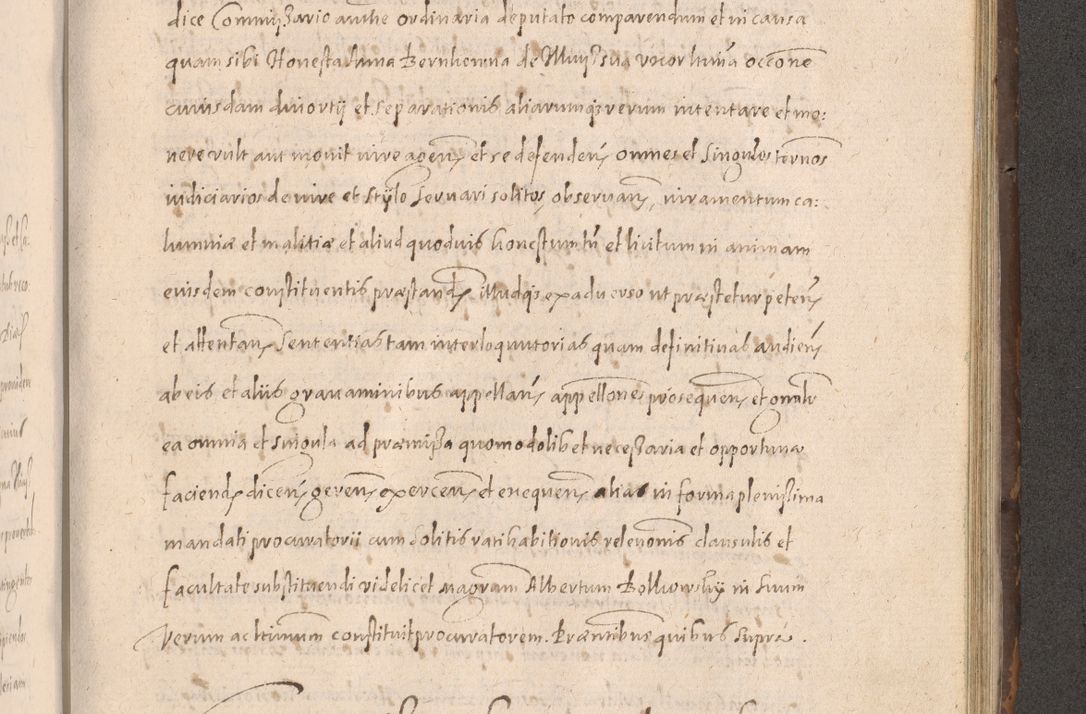 dice Commissario authe ordinaria deputato comparendum et in causa
quam sibi Honesta dnna uxor ltima occone
cuiusdam diuortij et separationis aliarumqs rerum intentare et mo:
nere vult aut mouit iure agen et se defenden omnes et singulos termos
iudiciarios de iure et stÿlo seruari solitos obseruan, iuramentum ca:
lumniæ et malitiæ et aliud quoduis honestum tn et licitum in animam
eiusdem constituentis præstand illudqs ex aduerso ut præstetur peten
et attentan sententias tam interloquutorias quam definitiuas audien
ab eis et aliis grauaminibus appellan appellone prosequen et gnalr
ea omnia et singula ad præmissa quomodolibet necessaria et opportuna
faciend dicen geren exercen et exequen alias in forma plenissima
mandati procuratorii cum solitis ratihabitionis releuonis clausulis et
facultate substituendi videlicet magrum Albertum in suum
verum ac ltimum constituit procuratorem. Præntibus quibus supra.